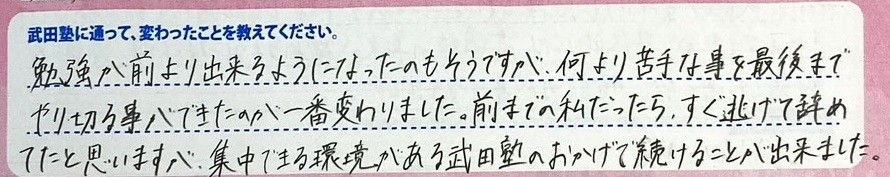 武田塾に通って、変わったことを教えてください。
勉強が前より出来るようになったのもそうですが、何より苦手な事を最後まで
やり切る事ができたのが一番変わりました。前までの私だったら、すぐ逃げて辞め
てたと思いますが、集中できる環境がある武田塾のおかげで続けることが出来ました。